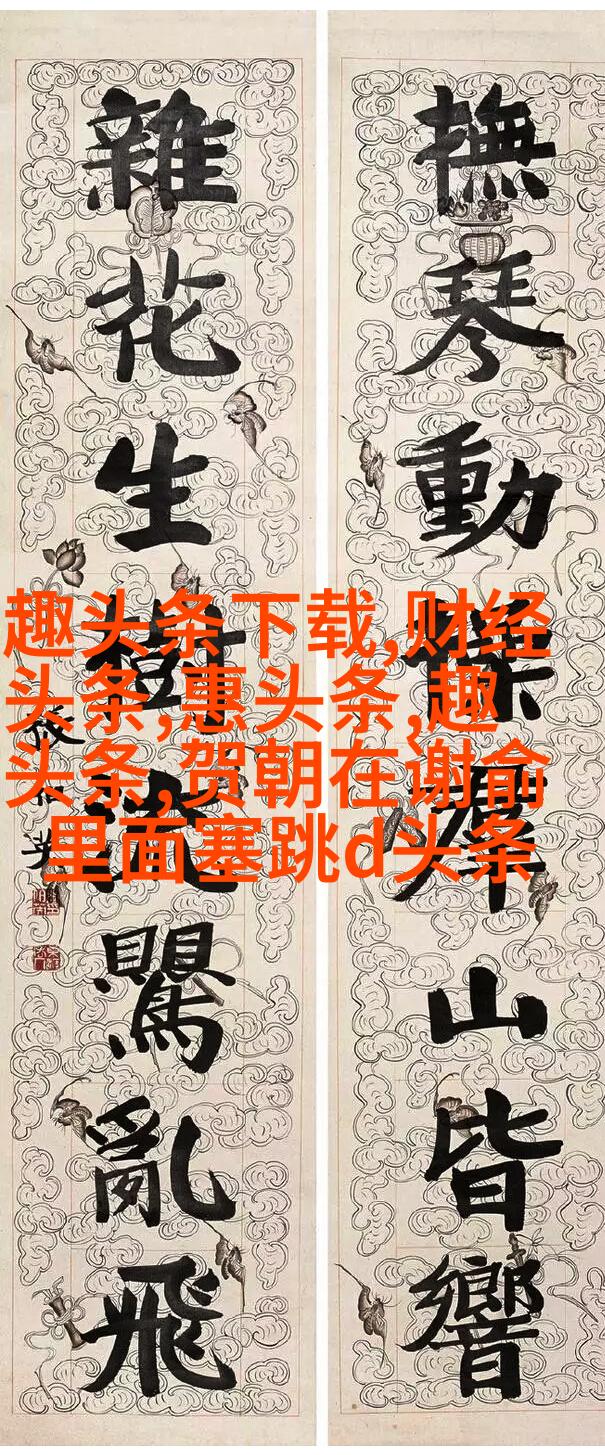 撫琴動操山皆響
雜花生樹鸎亂飛
趣头条下载,财经
头条,惠头条,趣
头条,贺朝在谢俞
里面塞跳d头条